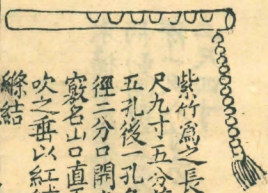 紫竹爲之長
尺九寸五分
五孔後一孔
徑二分口開
竅名山口直
吹之垂以紅
縧結